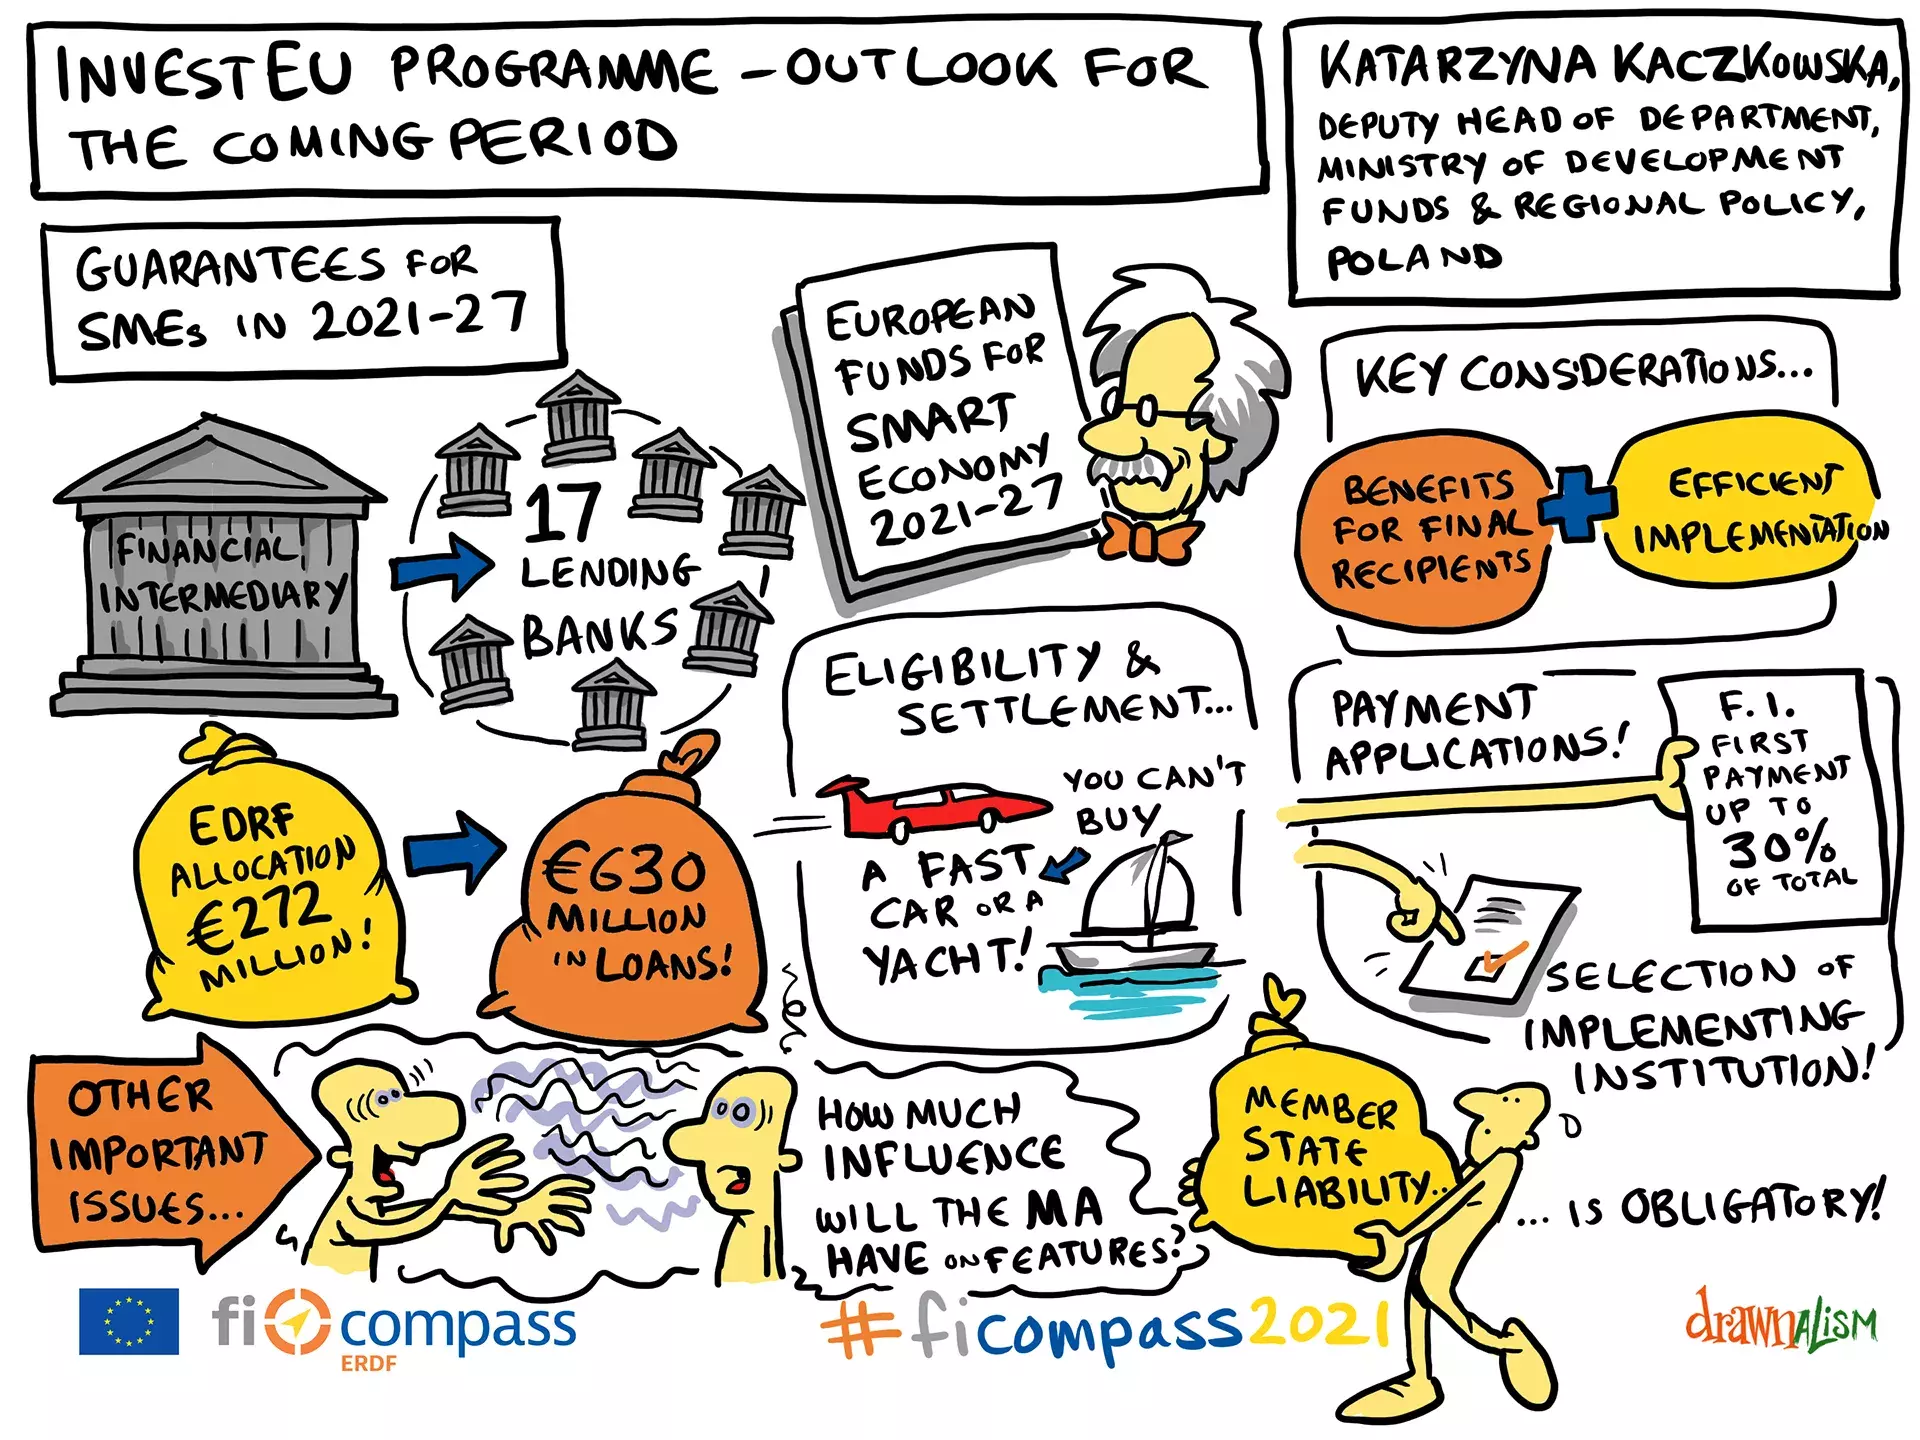 INVESTEU PROGRAMME – OUTLOOK FOR
THE COMING PERIOD
KATARZYNA KACZKOWSKA,
DEPUTY HEAD OF DEPARTMENT,
MINISTRY OF DEVELOPMENT
FUNDS & REGIONAL POLICY,
POLAND
GUARANTEES FOR
SMEs IN 2021-27
FINANCIAL
INTERMEDIARY
17
LENDING
BANKS
EUROPEAN
FUNDS FOR
SMART
ECONOMY
2021-27
KEY CONSIDERATIONS...
BENEFITS
FOR FINAL
RECIPIENTS
EFFICIENT
IMPLEMENTATION
EDRF
ALLOCATION
€272
MILLION!
€630
MILLION
IN LOANS!
ELIGIBILITY &
SETTLEMENT...
YOU CAN'T
BUY
A FAST
CAR OR A
YACHT!
PAYMENT
APPLICATIONS!
F.I.
FIRST
PAYMENT
UP TO
30%
OF TOTAL
SELECTION OF
IMPLEMENTING
INSTITUTION!
OTHER
IMPORTANT
ISSUES...
HOW MUCH
INFLUENCE
WILL THE MA
HAVE ON FEATURES?
MEMBER
STATE
LIABILITY..
... IS OBLIGATORY!
fi compass
ERDF
#ficompass2021
drawnALISM